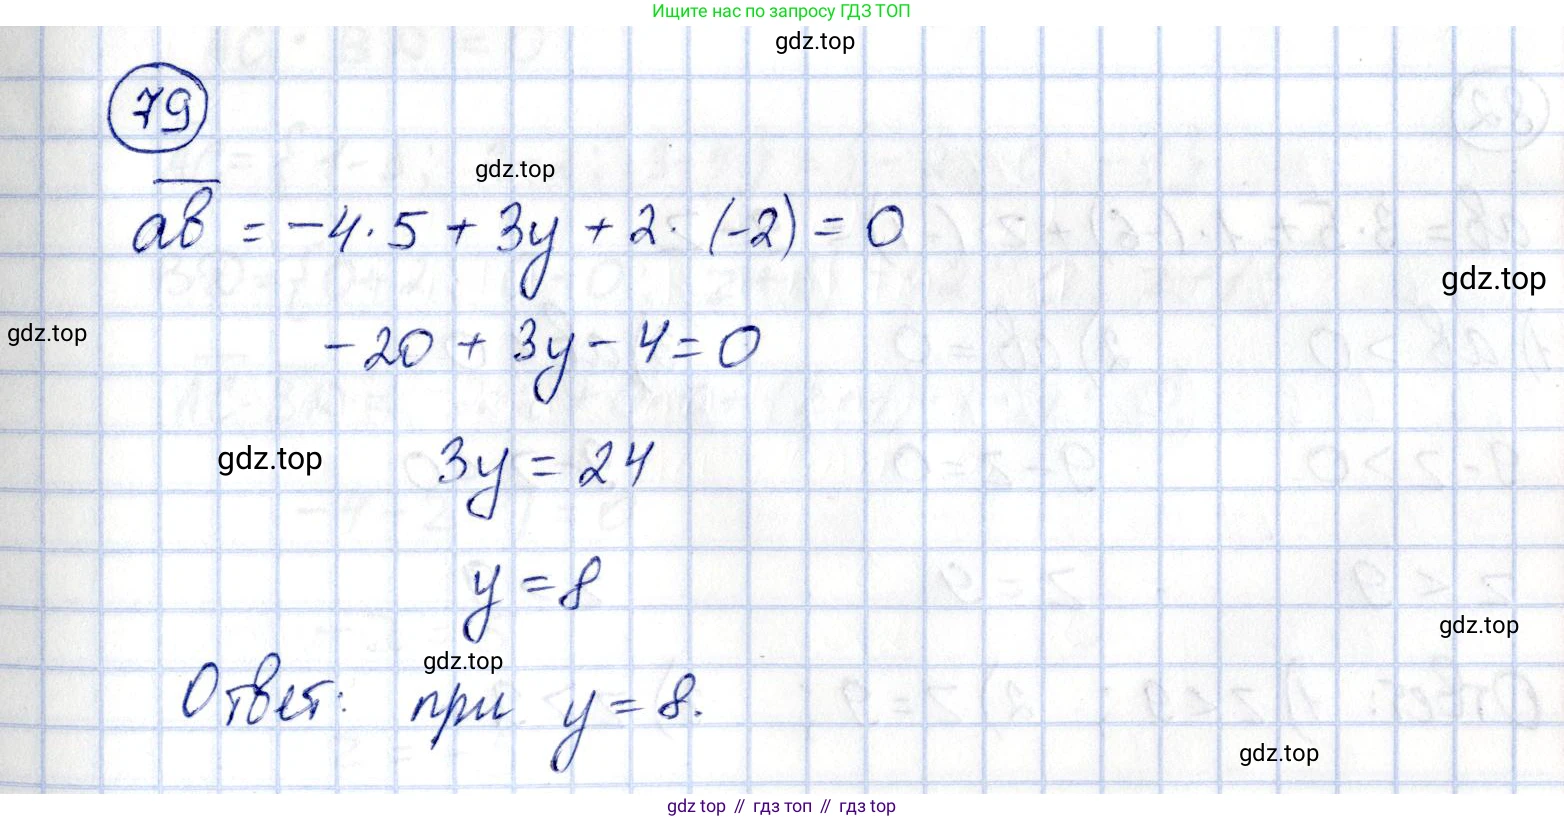 Ищите нас по запросу ГДЗ ТОП
gdz.top
79
gdz.top
ab = -4 · 5 + 3y + 2 · (-2) = 0
gdz.top
gdz.top
-20 + 3y - 4 = 0
gdz.top
3y = 24
y = 8
gdz.top
gdz.top
Ответ: при y = 8.
gdz.top
gdz top // гдз топ // гдз top